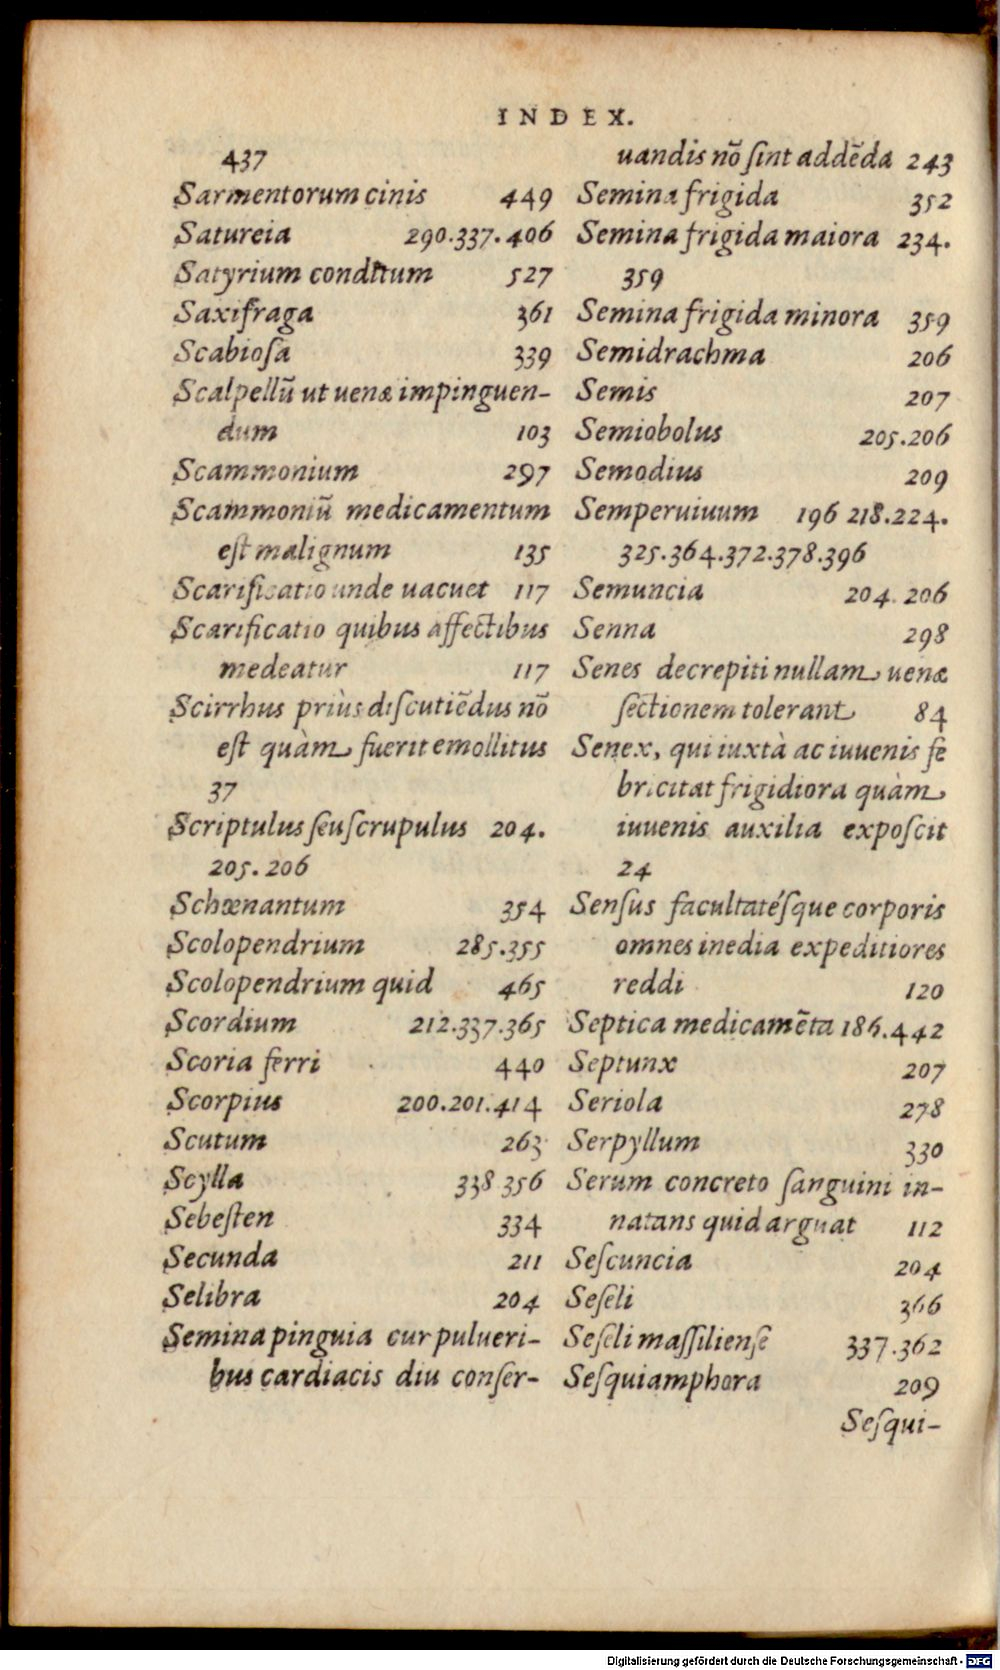 INDEX.
437
Sarmentorum cinis 449
Satureia 290.337.406
Satyrium conditum 527
Saxifraga 361
Scabioſa 339
Scalpellū ut uenæ impinguen-
dum 103
Scammonium 297
Scammoniū medicamentum
eſt malignum 135
Scarificatio unde uacuet 117
Scarificatio quibus affectibus
medeatur 117
Scirrhus priùs diſcutiēdus nō
eſt quàm fuerit emollitus
37
Scriptulus ſeu ſcrupulus 204.
205.206
Schœnantum 354
Scolopendrium 285.355
Scolopendrium quid 465
Scordium 212.337.365
Scoria ferri 440
Scorpius 200.201.414
Scutum 263
Scylla 338 356
Sebeſten 334
Secunda 211
Selibra 204
Semina pinguia cur pulueri-
bus cardiacis diu conſer-
uandis nō ſint addēda 243
Semina frigida 352
Semina frigida maiora 234.
359
Semina frigida minora 359
Semidrachma 206
Semis 207
Semiobolus 205.206
Semodius 209
Semperuiuum 196 218.224.
325.364.372.378.396
Semuncia 204.206
Senna 298
Senes decrepiti nullam uenæ
ſectionem tolerant 84
Senex, qui iuxtà ac iuuenis fe
bricitat frigidiora quàm
iuuenis auxilia expoſcit
24
Senſus facultatéſque corporis
omnes inedia expeditiores
reddi 120
Septica medicamēta 186.442
Septunx 207
Seriola 278
Serpyllum 330
Serum concreto ſanguini in-
natans quid arguat 112
Seſcuncia 204
Seſeli 366
Seſeli maſſilienſe 337.362
Seſquiamphora 209
Seſqui-
Digitalisierung gefördert durch die Deutsche Forschungsgemeinschaft - DFG